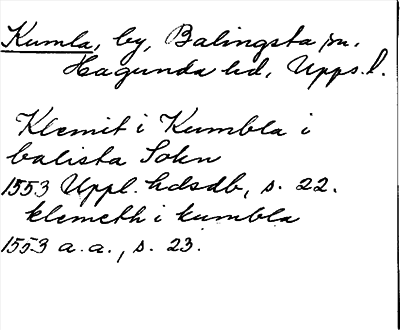 Kumla, by, Balingsta sn.
Hagunda hd, Upps. l.
Klemit i Kumbla i
balista Sokn
1553 Uppl. hdsdb, s. 22.
klemeth i kumbla
1553 a. a., s. 23.